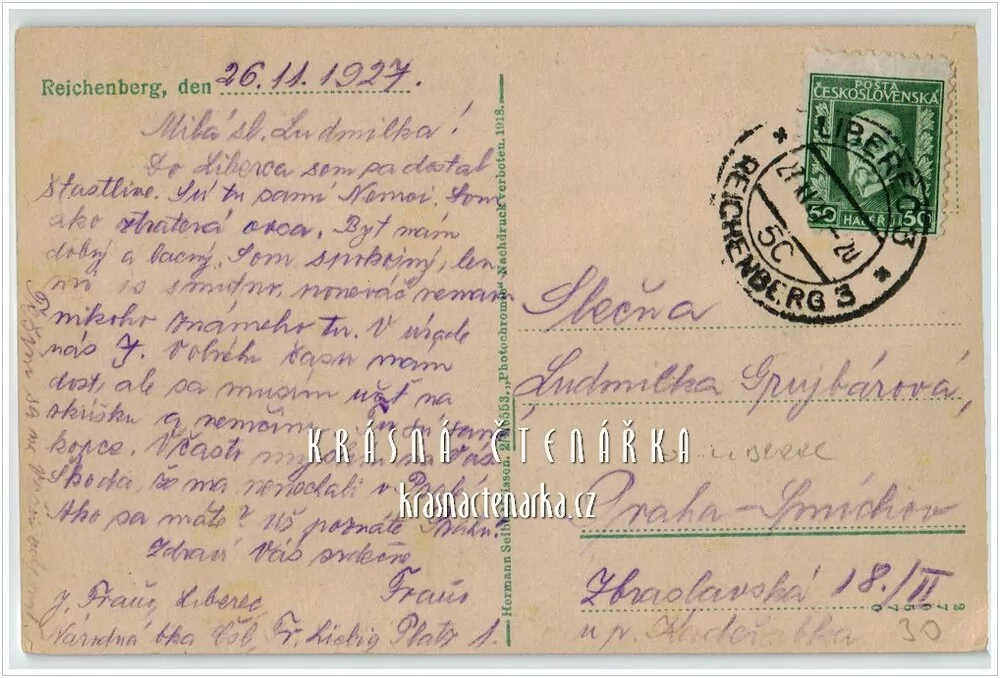 Reichenberg, den 26.11.1927.
Milá sl. Ludmilka!
Do Liberca som sa dostal
šťastlive. Sú tu samí Nemci. Som
ako ztratená ovca. Byt mám
dobrý a lacný. Som spokojný, len
mi je smutno, poneváč nemám
nikoho známeho tu. V úrade
nás 7. Volného času mám
dosť, ale sa musím učiť na
skúšku a nemčinu
kopce. Včasto myslím na Vás.
Škoda, že ma nenechali v Prahe.
Ako sa máte? Už poznáte Prahu?
Zdraví Vás srdečne
Fraňo
J. Fraňo, Liberec,
Národná bka Čsl., Fr. Liebig Platz 1.
Teším sa na
Hermann Seibt, Meissen. "Photochromie" Nachdruck verboten. 1918.
POŠTA
ČESKOSLOVENSKÁ
50 HALÉŘŮ 50
* LIBEREC 3 *
REICHENBERG 3
5C
Slečna
Ľudmilka Grujbárová,
Praha-Smíchov
Zbraslavská 18./II
u p. Kadeřábka
30
KRÁSNÁ ČTENÁŘKA
krasnactenarka.cz